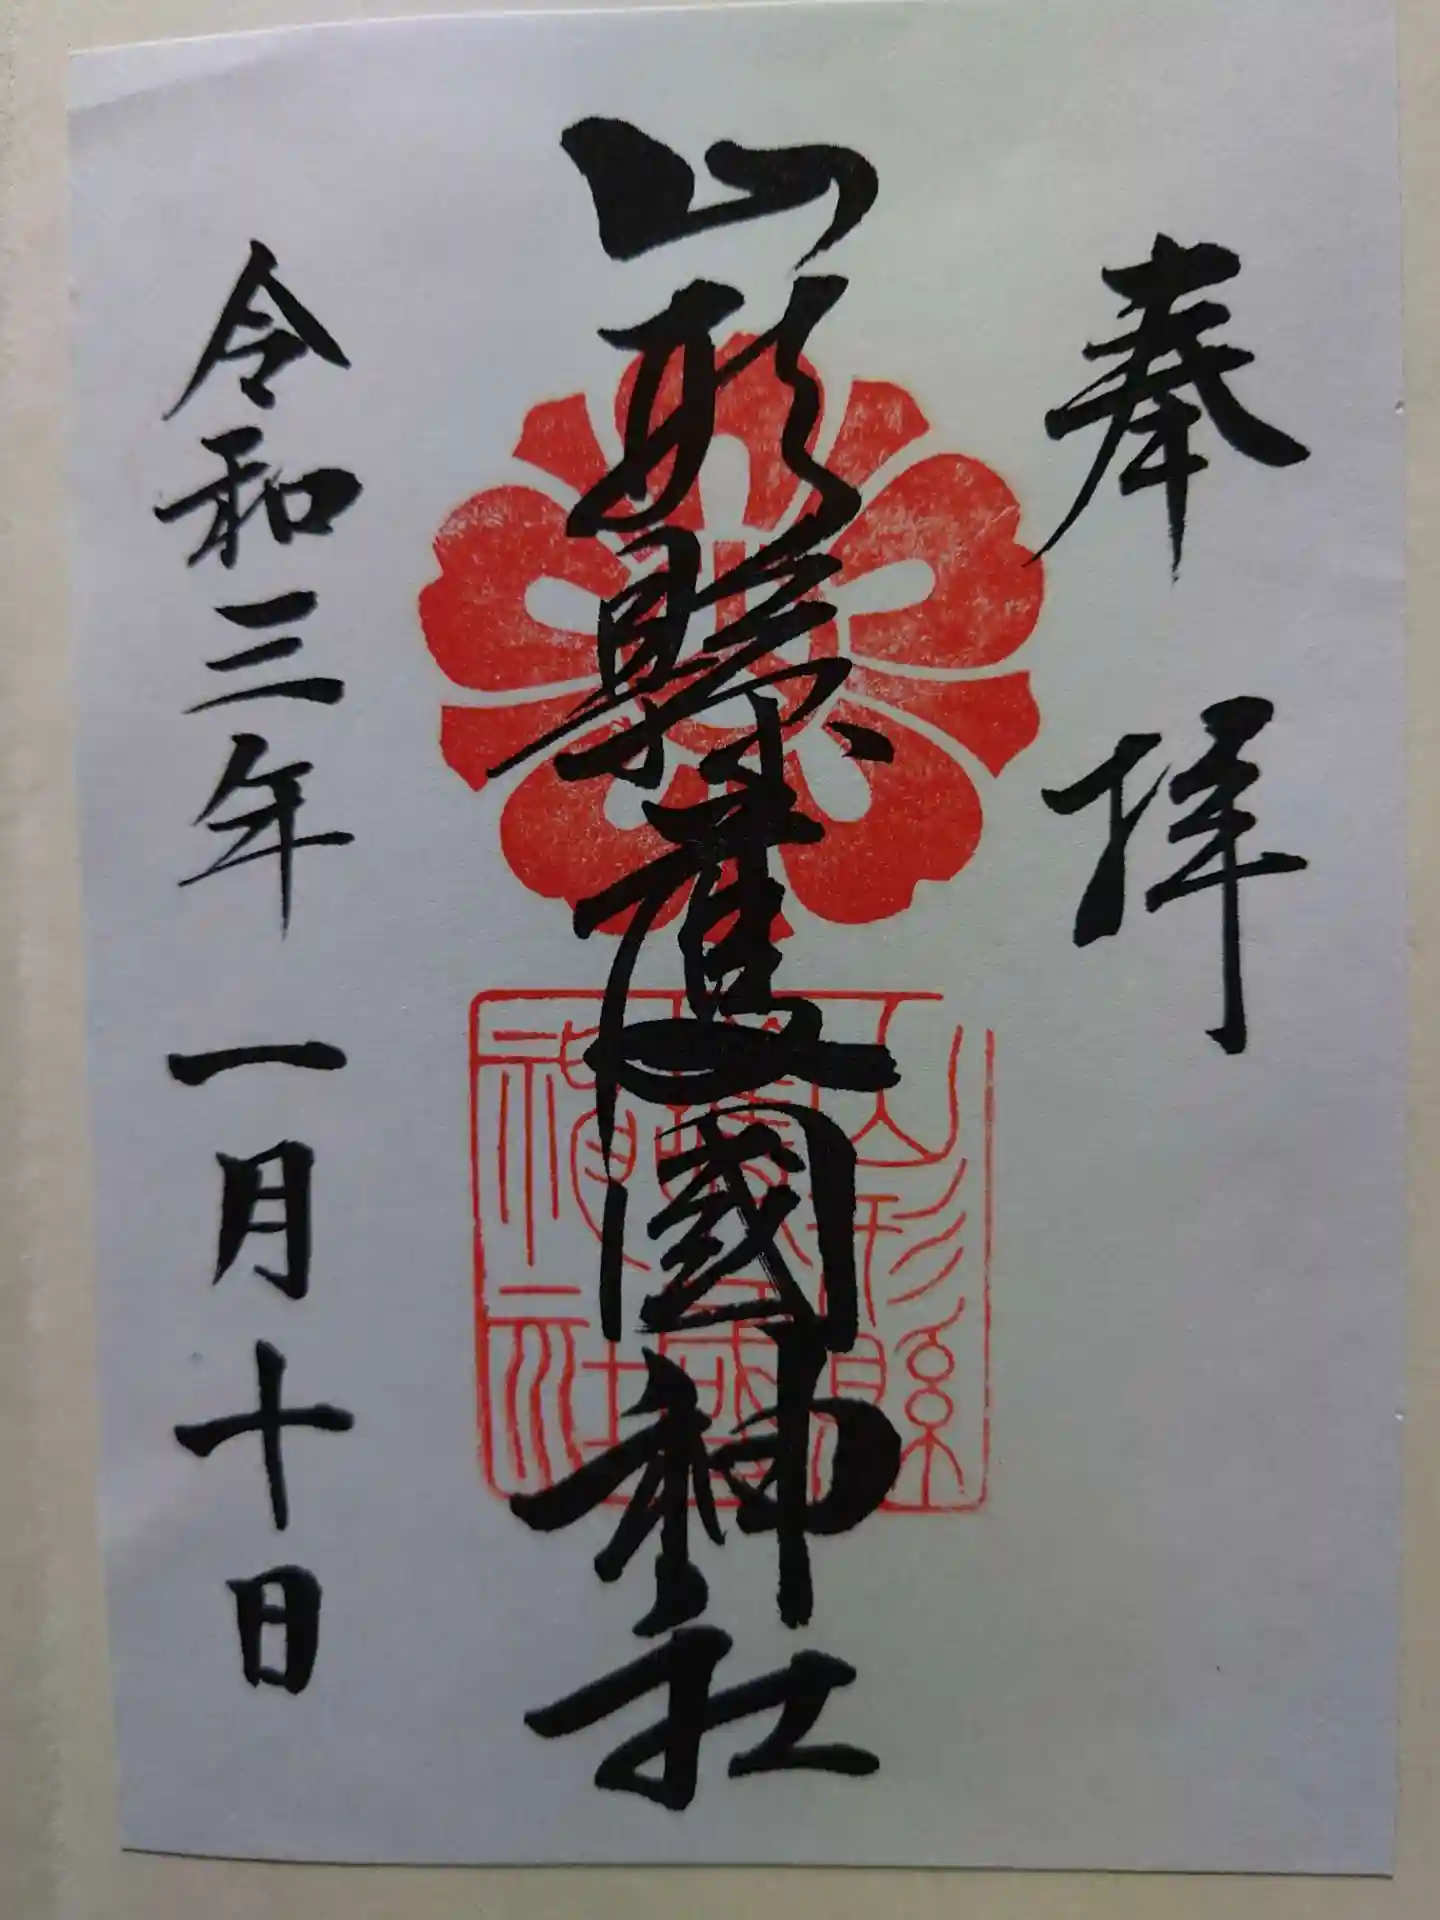 奉拝
山形縣護國神社
山形縣
護國
神社
令和三年一月十日